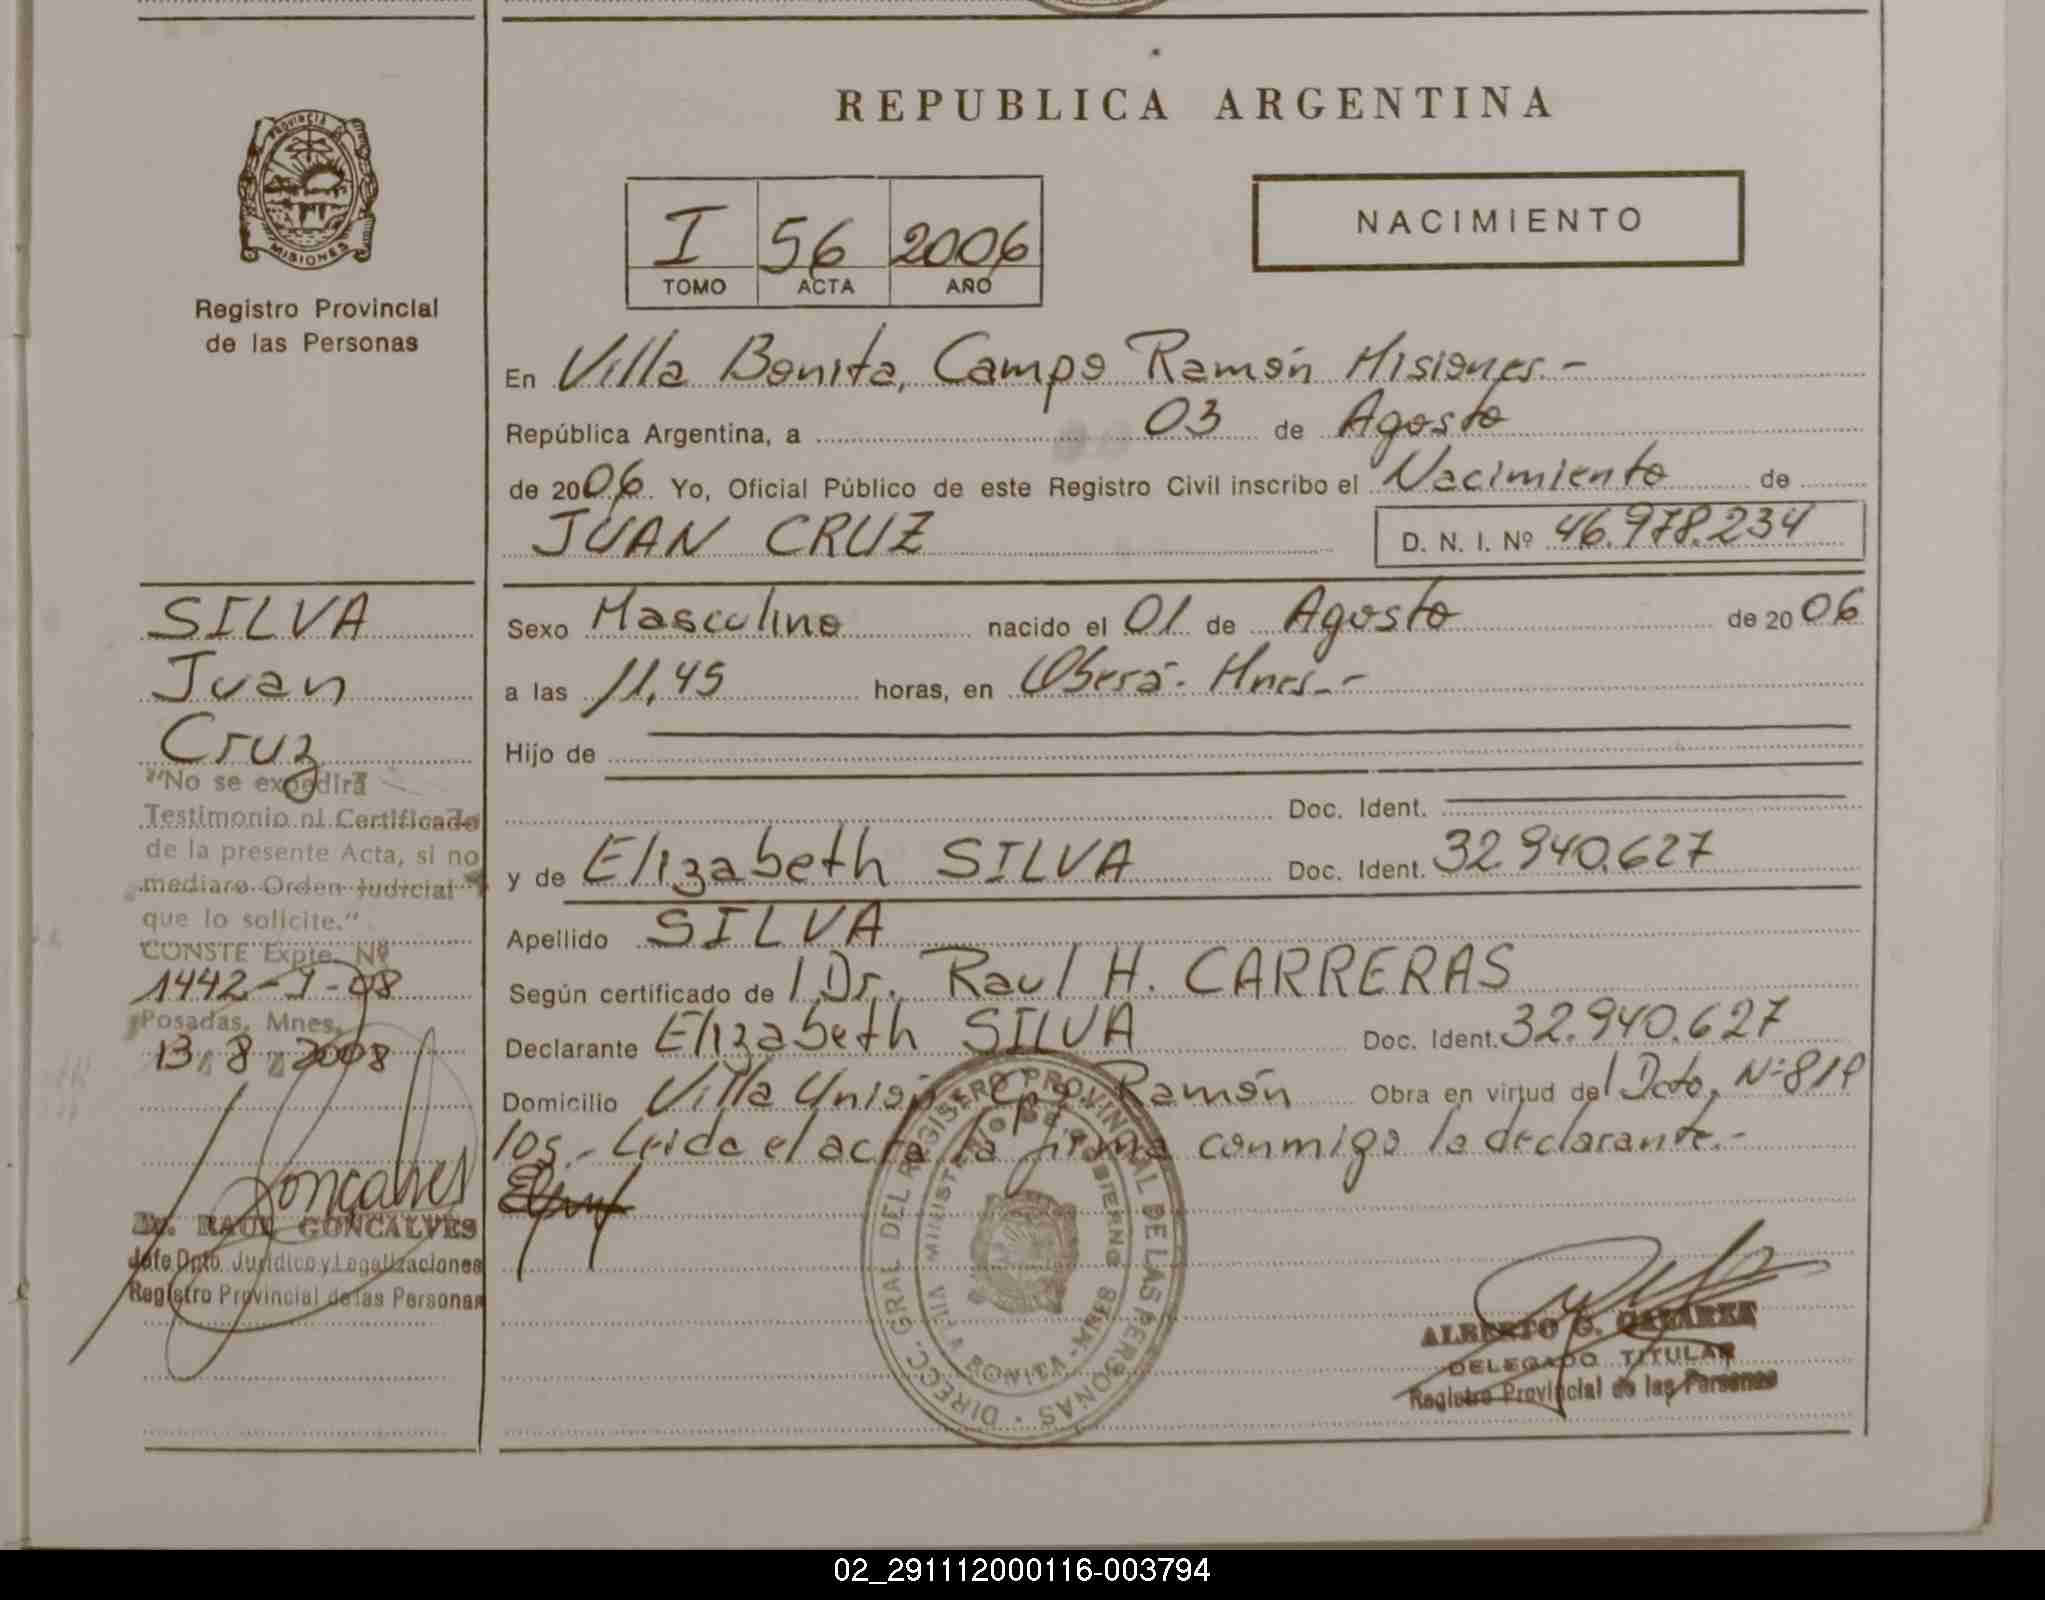 REPUBLICA ARGENTINA
PROVINCIA DE
MISIONES
Registro Provincial
de las Personas
I 56 2006
TOMO ACTA AÑO
NACIMIENTO
En Villa Bonita, Campo Ramón Misiones.-
República Argentina, a 03 de Agosto
de 2006. Yo, Oficial Público de este Registro Civil inscribo el Nacimiento de
JUAN CRUZ D. N. I. Nº 46.978.234
Sexo Masculino nacido el 01 de Agosto de 2006
a las 11,45 horas, en Oberá- Mnes.-
Hijo de
Doc. Ident.
y de Elizabeth SILVA Doc. Ident. 32.940.627
Apellido SILVA
Según certificado de l Dr. Raul H. CARRERAS
Declarante Elizabeth SILVA Doc. Ident. 32.940.627
Domicilio Villa Unión Cpo Ramón Obra en virtud del Dcto. Nº 819
105.- Leida el acta la firma conmigo la declarante.-
SILVA
Juan
Cruz
"No se expedirá
Testimonio ni Certificado
de la presente Acta, si no
mediare Orden Judicial
que lo solicite."
CONSTE Expte. Nº
1442-J-08
Posadas, Mnes.
13 8 2008
Goncalves
Dr. RAUL GONCALVES
Jefe Dpto. Jurídico y Legalizaciones
Registro Provincial de las Personas
DIRECC. GRAL. DEL REGISTRO PROVINCIAL DE LAS PERSONAS
MINISTERIO DE GOBIERNO
VILLA BONITA - MNES
ALBERTO G.
DELEGADO TITULAR
Registro Provincial de las Personas
02_291112000116-003794